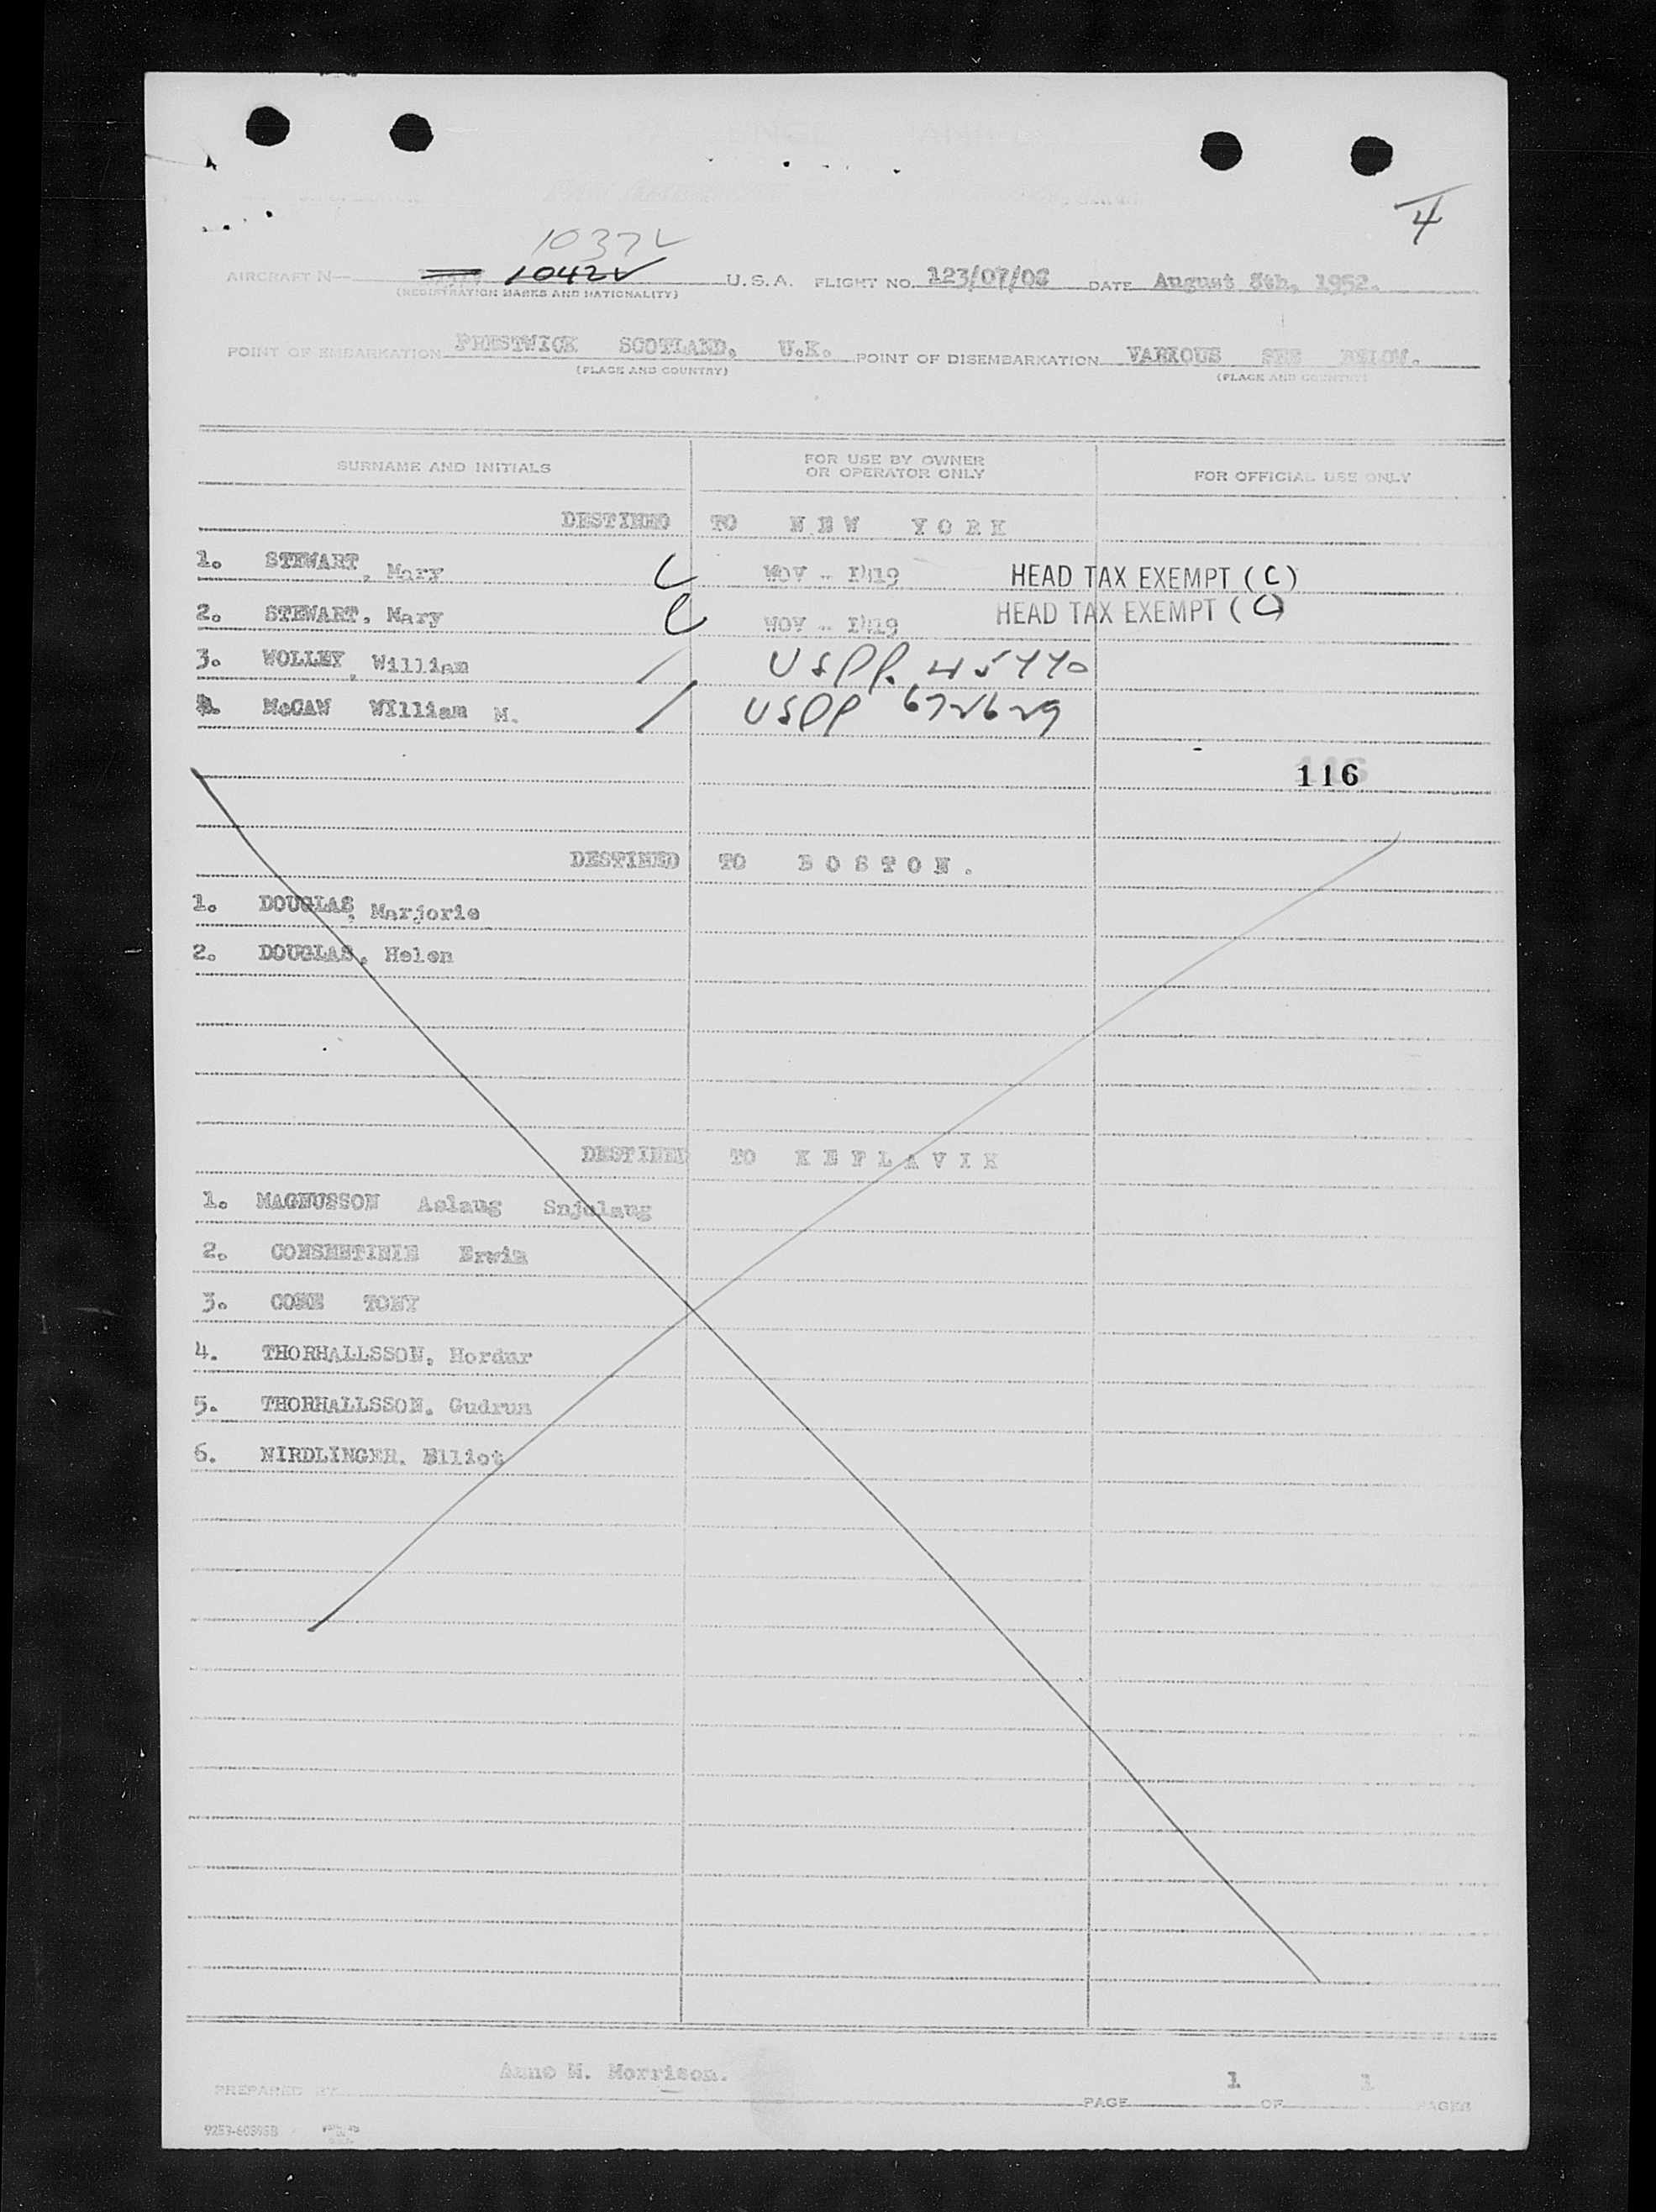 4
1037V
AIRCRAFT N- 1042V U.S.A. FLIGHT NO. 123/07/08 DATE August 8th, 1952.
(REGISTRATION MARKS AND NATIONALITY)
POINT OF EMBARKATION PRESTWICK SCOTLAND, U.K. POINT OF DISEMBARKATION VARIOUS SEE BELOW.
(PLACE AND COUNTRY) (PLACE AND COUNTRY)
SURNAME AND INITIALS FOR USE BY OWNER OR OPERATOR ONLY FOR OFFICIAL USE ONLY
DESTINED TO NEW YORK
1. STEWART, Mary C WOV - I419 HEAD TAX EXEMPT (C)
2. STEWART, Mary C WOV - I419 HEAD TAX EXEMPT (C)
3. WOLLEY, William / USPP. 45440
4. McCAW WIlliam M. / USPP 672629
116
DESTINED TO BOSTON.
1. DOUGLAS, Marjorie
2. DOUGLAS, Helen
DESTINED TO KEFLAVIK
1. MAGNUSSON Aslaug Snjolaug
2. Erwin
3. TONY
4. THORHALLSSON, Hordur
5. THORHALLSSON, Gudrun
6. NIRDLINGER, Elliot
Anne M. Morrison.
PREPARED BY PAGE 1 OF 1 PAGES
9253-60395B